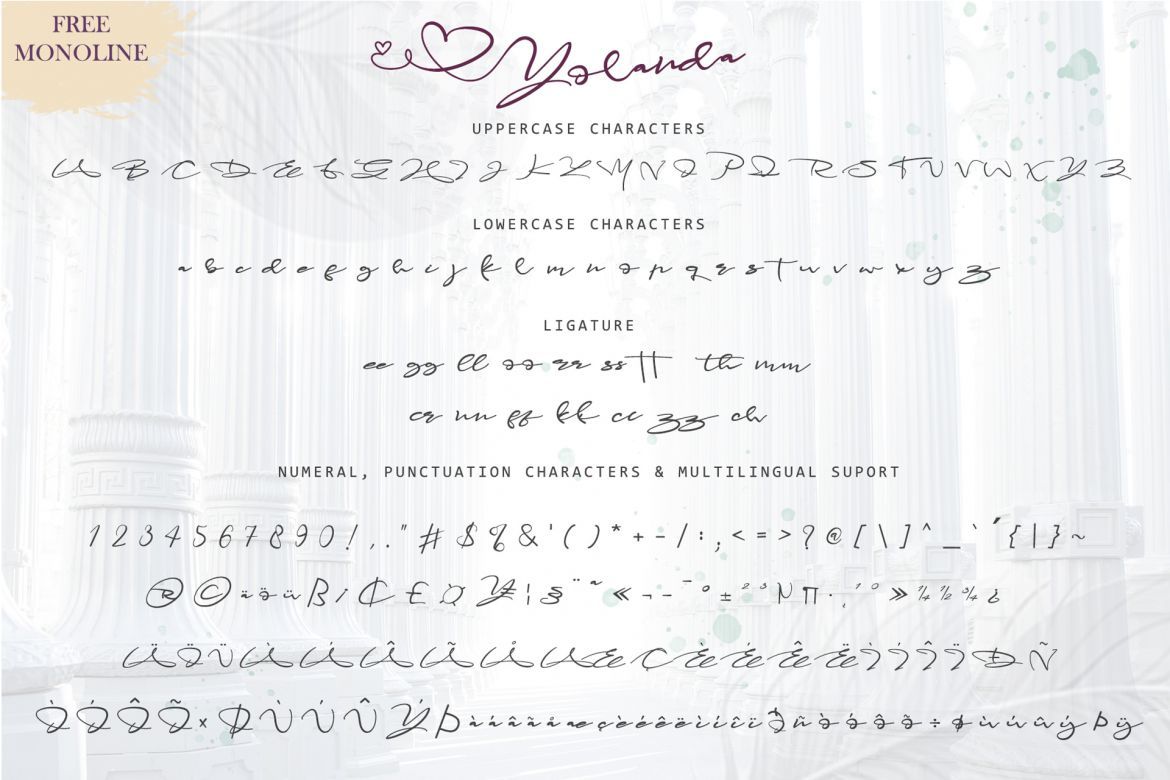 FREE
MONOLINE
Yolanda
UPPERCASE CHARACTERS
A B C D E F G H I J K L M N O P Q R S T U V W X Y Z
LOWERCASE CHARACTERS
a b c d e f g h i j k l m n o p q r s t u v w x y z
LIGATURE
ee gg ll oo rr ss tt th mm
er nn ff kk cc zz ch
NUMERAL, PUNCTUATION CHARACTERS & MULTILINGUAL SUPORT
1 2 3 4 5 6 7 8 9 0 ! , . " # $ % & ' ( ) * + - / : , < = > ? @ [ \ ] ^ _ ` ´ { | } ~
® © ä ö ü ß / ₵ £ ¤ ¥ ¦ § ¨ ª « ¬ - ¯ º ± ² ³ ¶ · ¸ ¹ º » ¼ ½ ¾ ¿
Ä Ö Ü À Á Â Ã Å Æ Ç È É Ê Ë Ì Í Î Ï Ð Ñ
Ò Ó Ô Õ × Ø Ù Ú Û Ý Þ à á â ã å æ ç è é ê ë ì í î ï ð ñ ò ó ô õ ÷ ø ù ú û ý þ ÿ